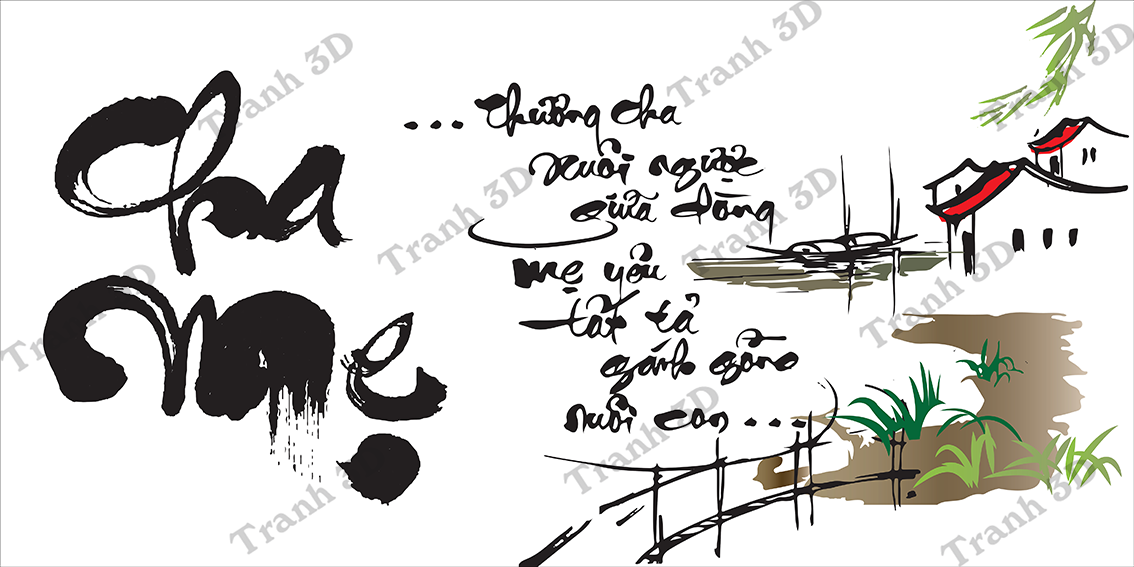 Cha
Mẹ
... thương cha
xuôi ngược
giữa dòng
mẹ yêu
tất tả
gánh gồng
nuôi con ...
Tranh 3D
Tranh 3D
Tranh 3D
Tranh 3D
Tranh 3D
Tranh 3D
Tranh 3D
Tranh 3D
Tranh 3D
Tranh 3D